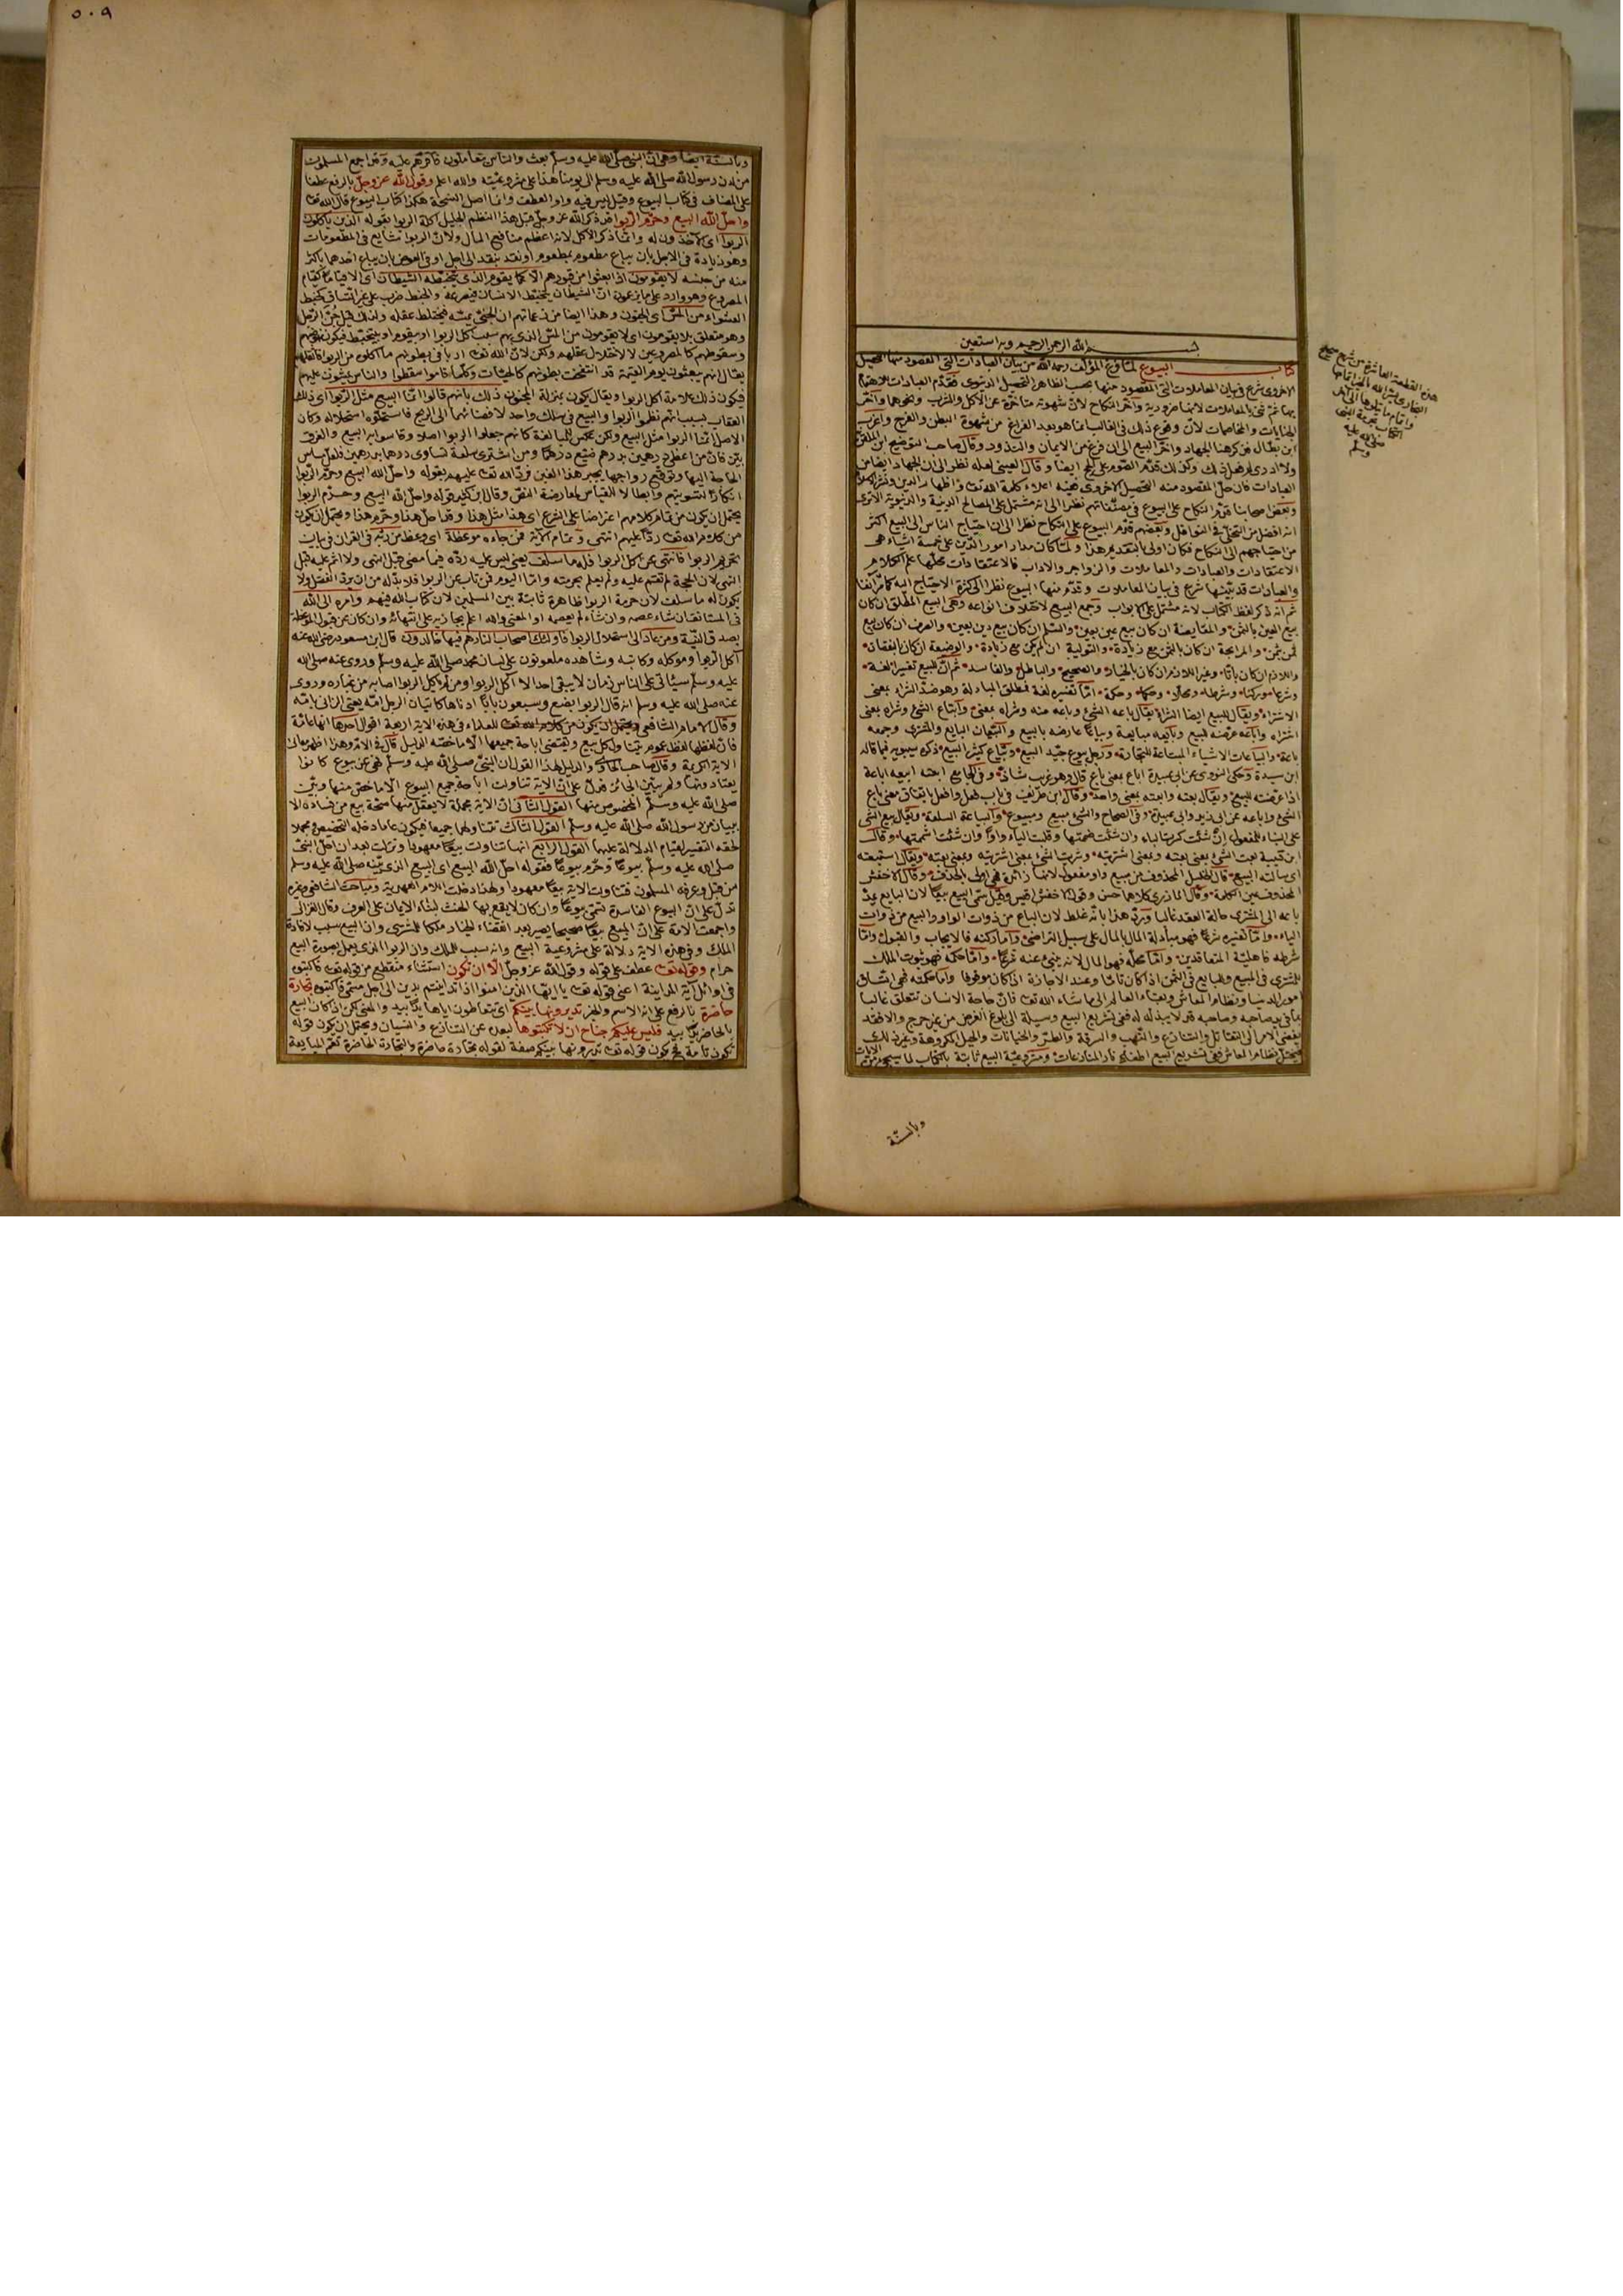 بسم الله الرحمن الرحيم وبه نستعين
كتاب البيوع لما فرغ المؤلف رحمه الله من بيان العبادات التي المقصود منها التحصيل
الاخروى شرع في بيان المعاملات التي المقصود منها بحسب الظاهر التحصيل الدنيوى فقدم العبادات للاهتمام
بها ثم ثنى بالمعاملات لانها ضرورية واخر النكاح لان شهوته متاخرة عن الاكل والشرب ونحوهما واخر
الجنايات والمخاصمات لان وقوع ذلك في الغالب انما هو بعد الفراغ من شهوة البطن والفرج
ابن بطال فذكر هنا الجهاد واخر البيع الى ان فرغ من الايمان والنذور وقال صاحب التوضيح ابن الملقن
ولا ادرى لم فعل ذلك وكذلك قدم الصوم على الحج ايضا وقال العينى لعله نظر الى ان الجهاد ايضا من
العبادات فان جل المقصود منه التحصيل الاخروى
وبعض اصحابنا قدم النكاح على البيوع في مصنفاتهم نظرا الى انه مشتمل على المصالح الدينية والدنيوية
انه افضل من التخلى في النوافل وبعضهم قدم البيوع على النكاح نظرا الى ان احتياج الناس الى البيع اكثر
من احتياجهم الى النكاح فكان اولى بالتقديم هذا ولما كان مدار امور الدين على خمسة اشياء هى
الاعتقادات والعبادات والمعاملات والزواجر والاداب فالاعتقادات محلها علم الكلام
والعبادات قد بينها شرع في بيان المعاملات وقدم منها البيوع نظرا الى كثرة الاحتياج اليه كما مر انفا
ثم انه ذكر لفظ الكتاب لانه مشتمل على الابواب وجمع البيع لاختلاف انواعه وهى البيع المطلق ان كان
بيع العين بالثمن والمقايضة ان كان بيع عين بعين والسلم ان كان بيع دين بعين والصرف ان كان بيع
ثمن بثمن والمرابحة ان كان بالثمن مع زيادة والتولية ان لم يكن مع زيادة والوضيعة ان كان بالنقصان
واللازم ان كان باتا وغير اللازم ان كان بالخيار والصحيح والباطل والفاسد ثم ان للبيع تفسيرا لغة
وشرعا وركنا وشرطا ومحلا وحكما وحكمة اما تفسيره لغة فمطلق المبادلة وهو ضد الشراء بمعنى
الاشتراء ويقال للبيع ايضا الشراء يقال باعه الشئ وباعه منه وشراه بمعنى وابتاع الشئ وشراه بمعنى
اشتراه واباعه عرضه للبيع وبايعه مبايعة وبياعا عارضه بالبيع والبيعان البايع والمشترى وجمعه
باعة والبياعات الاشياء المبتاعة للتجارة ورجل بيوع جيد البيع وبياع كثير البيع ذكره سيبويه فيما قاله
ابن سيدة وحكى النووى عن ابى عبيدة اباع بمعنى باع قال وهو غريب شاذ وفي الجامع ابعته ابيعه اباعة
اذا عرضته للبيع ويقال بعته وابعته بمعنى واحد وقال ابن طريف في باب فعل وافعل باتفاق معنى باع
الشئ واباعه عن ابى زيد وابى عبيدة وفي الصحاح والشئ مبيع ومبيوع والبياعة السلعة ويقال بيع الشئ
على البناء للمفعول ان شئت كسرت الباء وان شئت ضممتها وقلبت الياء واوا وان شئت اشممتها وقال
ابن قتيبة بعت الشئ بمعنى بعته وبمعنى اشتريته وشريت الشئ بمعنى اشتريته وبمعنى بعته ويقال استبعته
اى سالته البيع قال الخليل المحذوف من مبيع واو مفعول لانها زائدة فهى اولى بالحذف وقال الاخفش
المحذوف عين الكلمة وقال المازرى كلاهما حسن وقول الاخفش اقيس وقيل سمى البيع بيعا لان البايع يمد
باعه الى المشترى حالة العقد غالبا ويرد هذا بانه غلط لان الباع من ذوات الواو والبيع من ذوات
الياء واما تفسيره شرعا فهو مبادلة المال بالمال على سبيل التراضى واما ركنه فالايجاب والقبول واما
شرطه فاهلية المتعاقدين واما محله فهو المال لانه ينبئ عنه شرعا واما حكمه فهو ثبوت الملك
للمشترى في المبيع وللبايع في الثمن اذا كان تاما وعند الاجازة اذا كان موقوفا واما حكمته فهى اتساق
امور الدنيا ونظام المعاش وبقاء العالم الى ما شاء الله تعالى فان حاجة الانسان تتعلق غالبا
بما في يد صاحبه وصاحبه قد لا يبذله له ففى تشريع البيع وسيلة الى بلوغ الغرض من غير حرج والا فقد
يفضى الامر الى التقاتل والتنازع والنهب والسرقة والطر والخيانات والحيل المكروهة وغير ذلك
فيختل نظام المعاش ففى تشريع البيع اطفاء نار المنازعات ومشروعية البيع ثابتة بالكتاب لما سيجئ من الايات
وبالسنة
هذه القطعة العاشرة من شرح صحيح
البخارى يسر الله
واتمام ما يتلوها الى اخر
الكتاب بحرمة النبى
صلى الله عليه
وسلم
٥٠٩
وبالسنة ايضا وهى ان النبى صلى الله عليه وسلم بعث والناس يتعاملون فاقرهم عليه وقد اجمع المسلمون
من لدن رسول الله صلى الله عليه وسلم الى يومنا هذا على مشروعيته والله اعلم وقول الله عز وجل بالرفع عطفا
على المضاف في كتاب البيوع وقيل ليس فيه واو العطف وانما اصل النسخة هكذا كتاب البيوع قال الله تعالى
واحل الله البيع وحرم الربوا قد ذكر الله عز وجل قبل هذا النظم الجليل اكلة الربوا بقوله الذين ياكلون
الربوا اى الاخذون له وانما ذكر الاكل لانه اعظم منافع المال ولان الربوا شايع في المطعومات
وهو زيادة في الاجل بان يباع مطعوم بمطعوم او نقد بنقد الى اجل او في العوض بان يباع احدهما باكثر
منه من جنسه لا يقومون اذا بعثوا من قبورهم الا كما يقوم الذى يتخبطه الشيطان اى الا قياما كقيام
المصروع وهو وارد على ما يزعمون ان الشيطان يخبط الانسان فيصرعه والخبط ضرب على غير اتساق كخبط
العشواء من المس اى الجنون وهذا ايضا من زعماتهم ان الجنى يمسه فيختلط عقله ولذلك قيل جن الرجل
وهو متعلق بلا يقومون اى لا يقومون من المس الذى بهم بسبب اكل الربوا او بيقوم او بيتخبط فيكون نهوضهم
وسقوطهم كالمصروعين لا لاختلال عقلهم ولكن لان الله تعالى اربا في بطونهم ما اكلوه من الربوا فاثقلهم
يقال انهم يبعثون يوم القيمة قد انتفخت بطونهم كالحبليات وكلما قاموا سقطوا والناس يمشون عليهم
فيكون ذلك علامة اكل الربوا ويقال يكون بمنزلة المجنون ذلك بانهم قالوا انما البيع مثل الربوا اى ذلك
العقاب بسبب انهم نظموا الربوا والبيع في سلك واحد لافضائهما الى الربح فاستحلوه استحلاله وكان
الاصل انما الربوا مثل البيع ولكن عكس للمبالغة كانهم جعلوا الربوا اصلا وقاسوا به البيع والفرق
بين فان من اعطى درهمين بدرهم ضيع درهما ومن اشترى سلعة تساوى درهما بدرهمين فلعل مساس
الحاجة اليها وتوقع رواجها يجبر هذا الغبن فرد الله تعالى عليهم بقوله واحل الله البيع وحرم الربوا
انكارا لتسويتهم وابطالا للقياس لمعارضة النص وقال ابن كثير قوله واحل الله البيع وحرم الربوا
يحتمل ان يكون من تمام كلامهم اعتراضا على الشرع اى هذا مثل هذا وقد احل هذا وحرم هذا ويحتمل ان يكون
من كلام الله تعالى ردا عليهم انتهى وتمام الاية فمن جاءه موعظة اى وعظ من ربه في القران في بيان
تحريم الربوا فانتهى عن اكل الربوا فله ما سلف يعنى ليس عليه رده فيما مضى قبل النهى ولا اثم عليه قبل
النهى لان الحجة لم تقم عليه ولم يعلم بحرمته واما اليوم فمن تاب عن الربوا فلا بد له من ان يرد الفضل ولا
يكون له ما سلف لان حرمة الربوا ظاهرة ثابتة بين المسلمين لان كتاب الله فيهم وامره الى الله
في المستانف ان شاء عصمه وان شاء لم يعصمه او المعنى والله اعلم يجازيه على انتهائه وان كان عن قبول الموعظة
بصدق النية ومن عاد الى استحلال الربوا فاولئك اصحاب النار هم فيها خالدون قال ابن مسعود رضى الله عنه
اكل الربوا وموكله وكاتبه وشاهده ملعونون على لسان محمد صلى الله عليه وسلم وروى عنه صلى الله
عليه وسلم سياتى على الناس زمان لا يبقى احد الا اكل الربوا ومن لم ياكل الربوا اصابه من غباره وروى
عنه صلى الله عليه وسلم انه قال الربوا بضع وسبعون بابا ادناها كاتيان الرجل امه يعنى الزانى بامه
وقال الامام الشافعى للعلماء في هذه الاية اربعة اقوال احدها انها عامة
فان لفظها لفظ عموم يتناول كل بيع ويقتضى اباحة جميعها الا ما خصه الدليل قال في الام وهذا اظهر معانى
الاية الكريمة وقال صاحب الحاوى والدليل لهذا القول ان النبى صلى الله عليه وسلم نهى عن بيوع كانوا
يعتادونها ولم يبين الجائز فدل على ان الاية تناولت اباحة جميع البيوع الا ما خص منها وبين
صلى الله عليه وسلم المخصوص منها القول الثانى ان الاية مجملة لا يعقل منها صحة بيع من فساده الا
ببيان من رسول الله صلى الله عليه وسلم القول الثالث تتناولهما جميعا فيكون عاما دخله التخصيص ومجملا
لحقه التفسير لقيام الدلالة عليهما القول الرابع انها تناولت بيعا معهودا ونزلت بعد ان احل النبى
صلى الله عليه وسلم بيوعا وحرم بيوعا فقوله احل الله البيع اى البيع الذى بينه صلى الله عليه وسلم
من قبل وعرفه المسلمون فتناولت الاية بيعا معهودا ولهذا دخلت اللام العهدية ومباحث الشافعى وغيره
تدل على ان البيوع الفاسدة تسمى بيوعا وان كان لا يقع بها الحنث لبناء الايمان على العرف وقال القرافى
واجمعت الامة على ان المبيع بيعا صحيحا يصير بعد انقضاء الخيار ملكا للمشترى وان البيع سبب لافادة
الملك وفي هذه الاية دلالة على مشروعية البيع وانه سبب للملك وان الربوا الذى يعمل بصورة البيع
حرام وقوله تعالى عطف على قوله وقول الله عز وجل الا ان تكون استثناء منقطع من قوله تعالى فاكتبوه
في اوائل اية المداينة اعنى قوله تعالى يا ايها الذين امنوا اذا تداينتم بدين الى اجل مسمى فاكتبوه تجارة
حاضرة بالرفع على انه الاسم والخبر تديرونها بينكم اى تتعاطون اياها يدا بيد والمعنى لكن اذا كان البيع
بالحاضر يدا بيد فليس عليكم جناح ان لا تكتبوها لبعد عن التنازع والنسيان ويحتمل ان يكون قوله
تكون تامة فيكون قوله تعالى تديرونها بينكم صفة لقوله تجارة حاضرة والتجارة الحاضرة تعم المبايعة